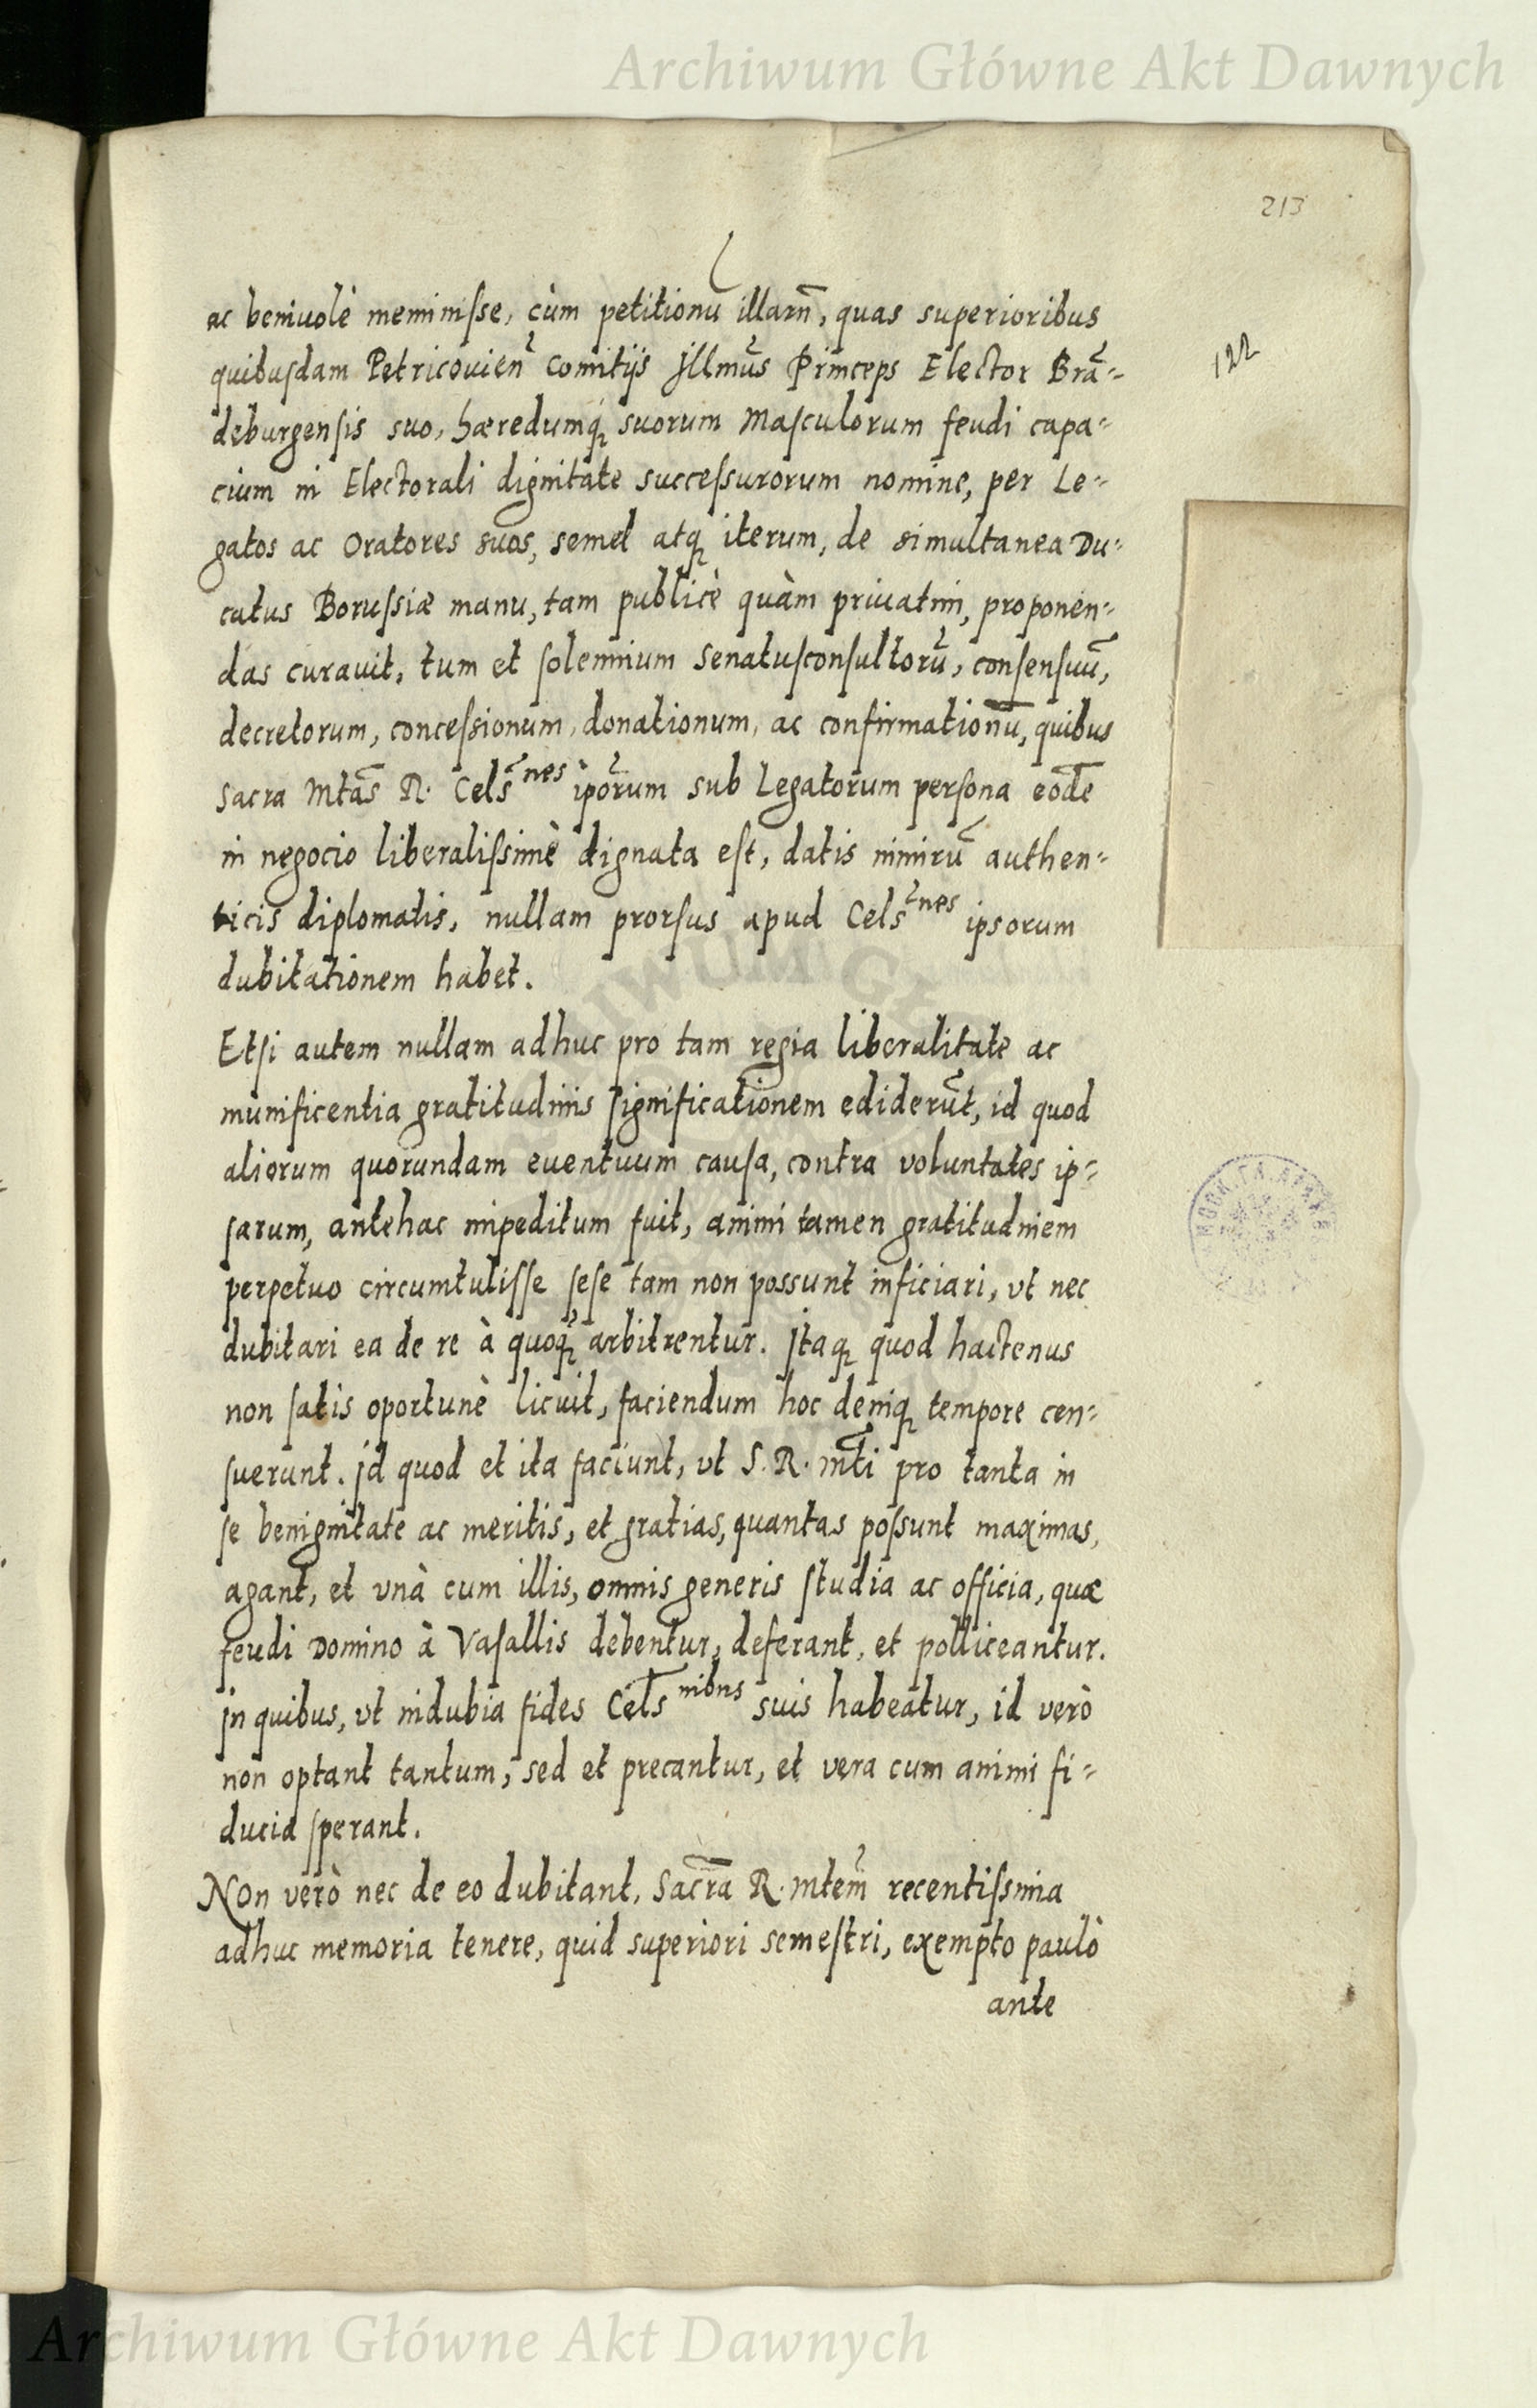 Archiwum Główne Akt Dawnych
213
122
ac beniuolè meminisse, cùm petitionū illarū, quas superioribus
quibusdam Petricouien̄ Comitijs Illmūs Princeps Elector Brā-
deburgensis suo, hæredumq́ꝫ suorum Masculorum feudi capa-
cium in Electorali dignitate successurorum nomine, per Le-
gatos ac Oratores suos, semel atqꝫ iterum, de simultanea Du-
catus Borussiæ manu, tam publicè quàm priuatim, proponen-
das curauit, tum et solennium Senatusconsultorū, consensuū,
decretorum, concessionum, donationum, ac confirmationū, quibus
Sacra Mtās R. Cels̄nes ipōrum sub Legatorum persona eodē
in negocio liberalissimè dignata est, datis nimirū authen-
ticis diplomatis, nullam prorsus apud Cels̄nes ipsorum
dubitationem habet.
Etsi autem nullam adhuc pro tam regia liberalitate ac
munificentia gratitudinis significationem ediderūt, id quod
aliorum quorundam euentuum causa, contra voluntates ip-
sarum, antehac impeditum fuit, animi tamen gratitudinem
perpetuo circumtulisse sese tam non possunt inficiari, vt nec
dubitari ea de re à quoqꝫ́ arbitrentur. Itaqꝫ quod hactenus
non satis oportunè licuit, faciendum hoc deniqꝫ tempore cen-
suerunt. Id quod et ita faciunt, vt S. R. Mt̄i pro tanta in
se benignitate ac meritis, et gratias, quantas possunt maximas,
agant, et vnà cum illis, omnis generis studia ac officia, quæ
feudi Domino à Vasallis debentur, deferant, et polliceantur.
In quibus, vt indubia fides Cels̄nibus suis habeatur, id verò
non optant tantum, sed et precantur, et vera cum animi fi-
ducia sperant.
Non verò nec de eo dubitant, Sacr̄a R. Mtem̄ recentissima
adhuc memoria tenere, quid superiori semestri, exempto paulò
ante
Archiwum Główne Akt Dawnych